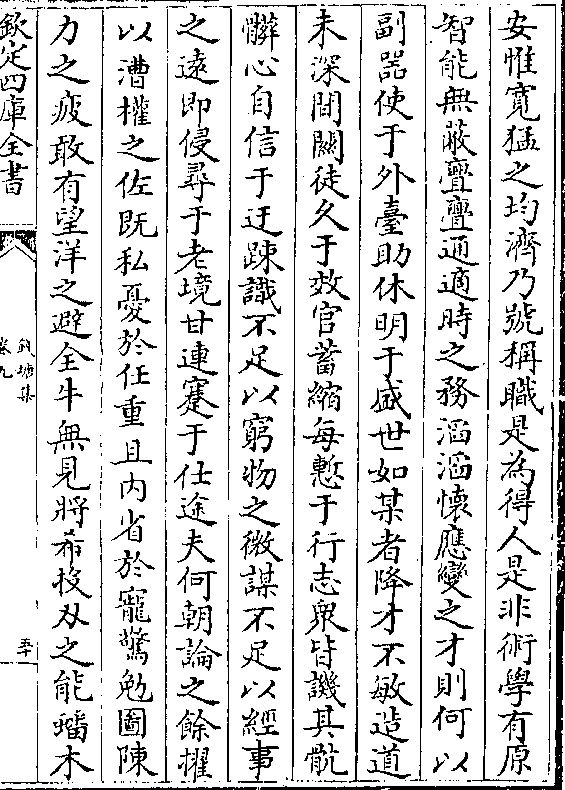 安惟寛猛之均濟乃號稱職是為得人是非術學有原
智能無蔽亹亹通適時之務滔滔懷應變之才則何以
副器使于外臺助休明于盛世如某者降才不敏造道
未深間關徒久于效官蓄縮每慙于行志衆皆譏其骯
髒心自信于迂踈識不足以窮物之微謀不足以經事
之遠即侵尋于老境甘連蹇于仕途夫何朝論之餘擢
以漕權之佐既私憂於任重且内省於寵驚勉圖陳
力之疲敢有望洋之避全牛無見將希投刃之能蟠木
欽定四庫全書
錢塘集
卷九